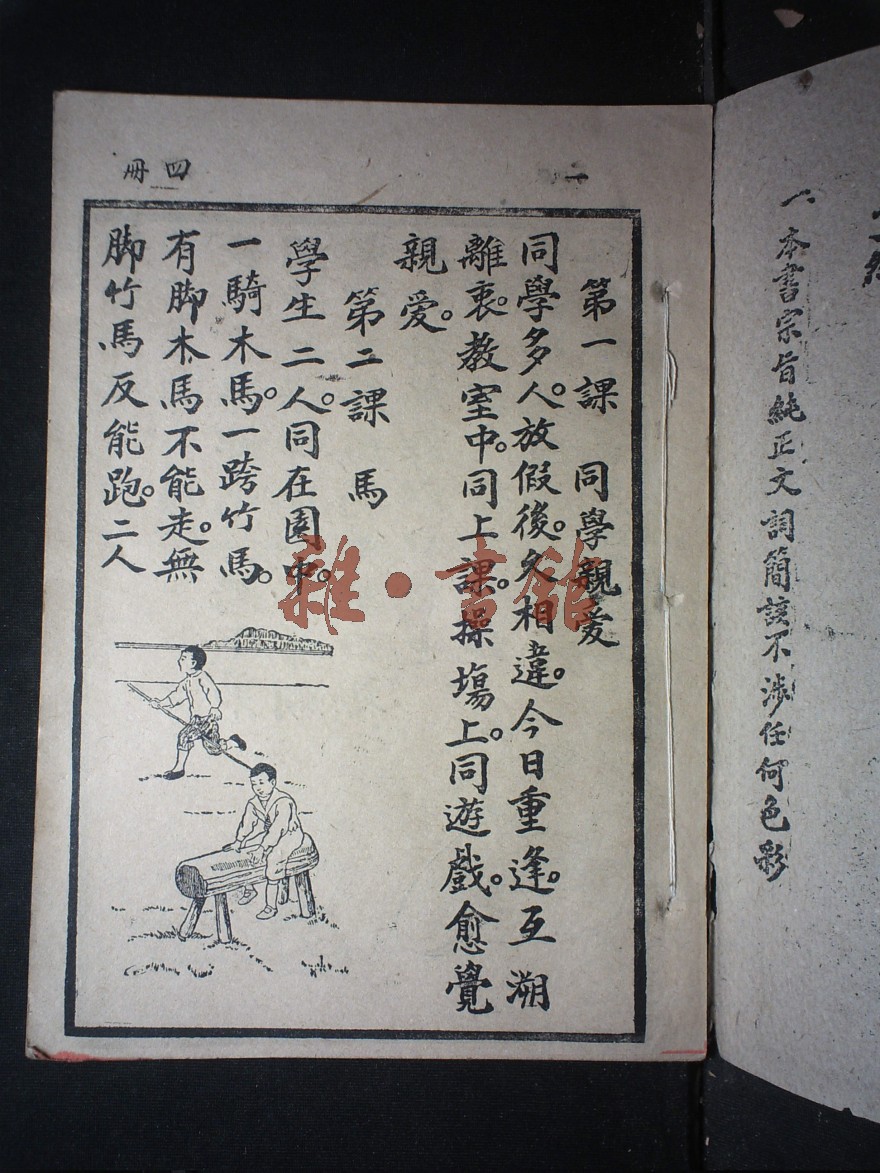 一、本書宗旨純正文詞簡該不涉任何色彩
一
四冊
第一課 同學親愛
同學多人。放假後。久相違。今日重逢。互溯
離衷。教室中。同上課。操塲上。同遊戲。愈覺
親愛。
第二課 馬
學生二人。同在園中。
一騎木馬。一跨竹馬。
有脚木馬不能走。無
脚竹馬反能跑。二人
雜·書館